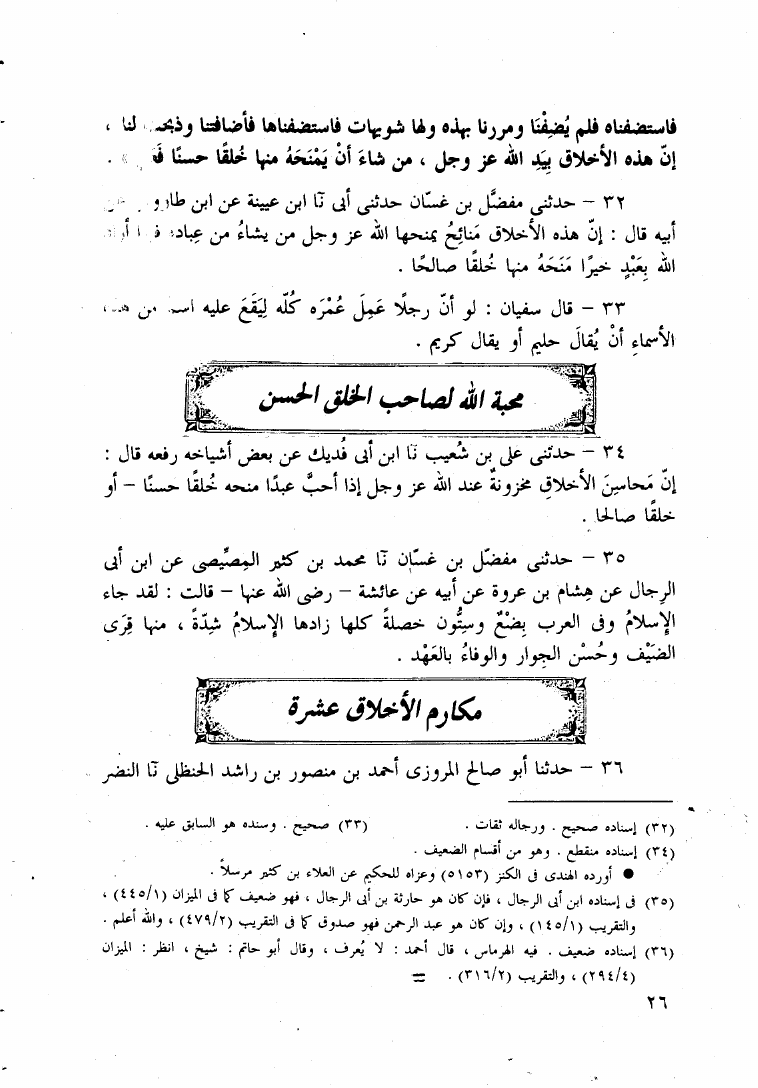 فاستضفناه فلم يُضِفْنَا ومررنا بهذه ولها شويهات فاستضفناها فأضافتنا وذبحت لنا ،
إنّ هذه الأخلاق بِيَدِ الله عز وجل ، من شاءَ أنْ يَمْنَحَهُ منها خُلقًا حسنًا » .
٣٢ – حدثنى مفضَّل بن غسّان حدثنى أبى نَا ابن عيينة عن ابن طاووس عن
أبيه قال : إنّ هذه الأخلاق مَنائِحُ يمنحها الله عز وجل من يشاءُ من عِباده فإذا أراد
الله بِعَبْدٍ خيرًا مَنَحَهُ منها خُلقًا صالحًا .
٣٣ – قال سفيان : لو أنّ رجلًا عَمِلَ عُمْرَه كُلّه لِيَقَعَ عليه اسمٌ من هذه
الأسماءِ أنْ يُقالَ حليم أو يقال كريم .
محبة الله لصاحب الخلق الحسن
٣٤ – حدثنى على بن شُعيب نَا ابن أبى فُديك عن بعض أشياخه رفعه قال :
إنّ مَحاسِنَ الأخلاقِ مخزونةٌ عند الله عز وجل إذا أحبَّ عبدًا منحه خُلقًا حسنًا – أو
خلقًا صالحا .
٣٥ – حدثنى مفضّل بن غسّان نَا محمد بن كثير المِصِّيصى عن ابن أبى
الرجال عن هِشام بن عروة عن أبيه عن عائشة – رضى الله عنها – قالت : لقد جاء
الإسلامُ وفى العرب بِضْعٌ وسِتُّون خصلةً كلها زادها الإسلامُ شِدّةً ، منها قِرَى
الضَيْف وحُسْن الجوار والوفاءُ بالعَهْد .
مكارم الأخلاق عشرة
٣٦ – حدثنا أبو صالح المروزى أحمد بن منصور بن راشد الحنظلى نَا النضر
(٣٢) إسناده صحيح . ورجاله ثقات . (٣٣) صحيح . وسنده هو السابق عليه .
(٣٤) إسناده منقطع . وهو من أقسام الضعيف .
● أورده الهندى فى الكنز (٥١٥٣) وعزاه للحكيم عن العلاء بن كثير مرسلاً .
(٣٥) فى إسناده ابن أبى الرجال ، فإن كان هو حارثة بن أبى الرجال ، فهو ضعيف كما فى الميزان (٤٤٥/١) ،
والتقريب (١٤٥/١) ، وإن كان هو عبد الرحمن فهو صدوق كما فى التقريب (٤٧٩/٢) ، والله أعلم .
(٣٦) إسناده ضعيف . فيه الهرماس ، قال أحمد : لا يُعرف ، وقال أبو حاتم : شيخ ، انظر : الميزان
(٢٩٤/٤) ، والتقريب (٣١٦/٢) . =
٢٦